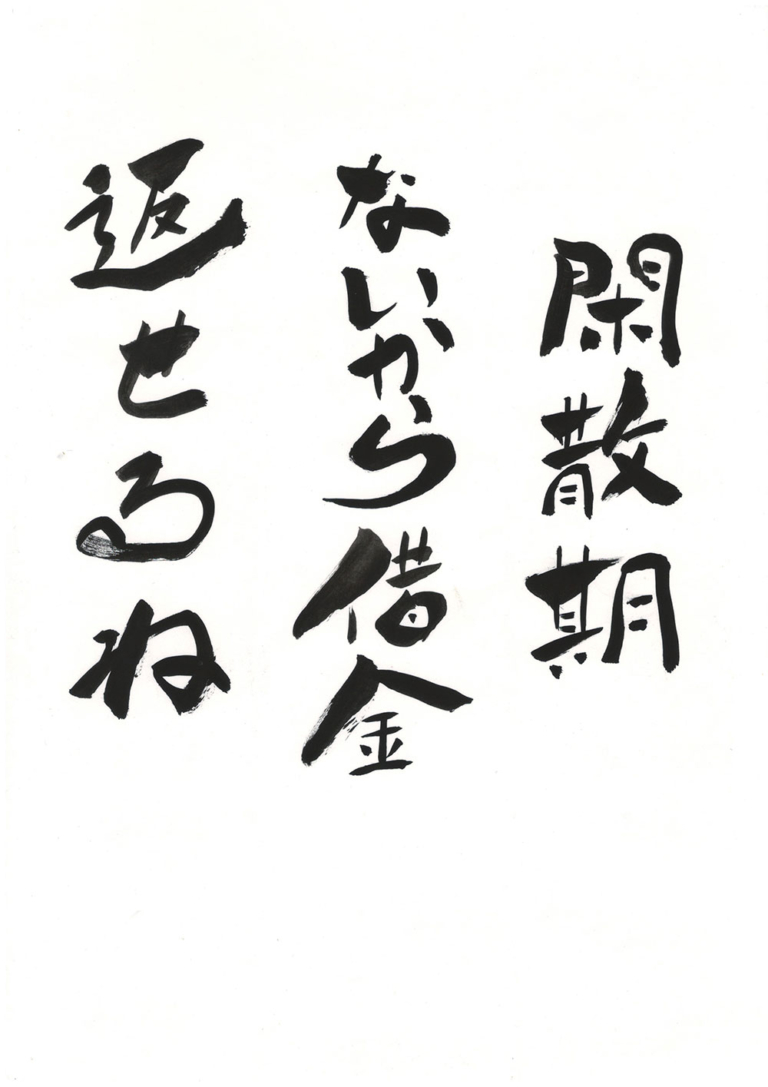 閑散期
ないから借金
返せるね